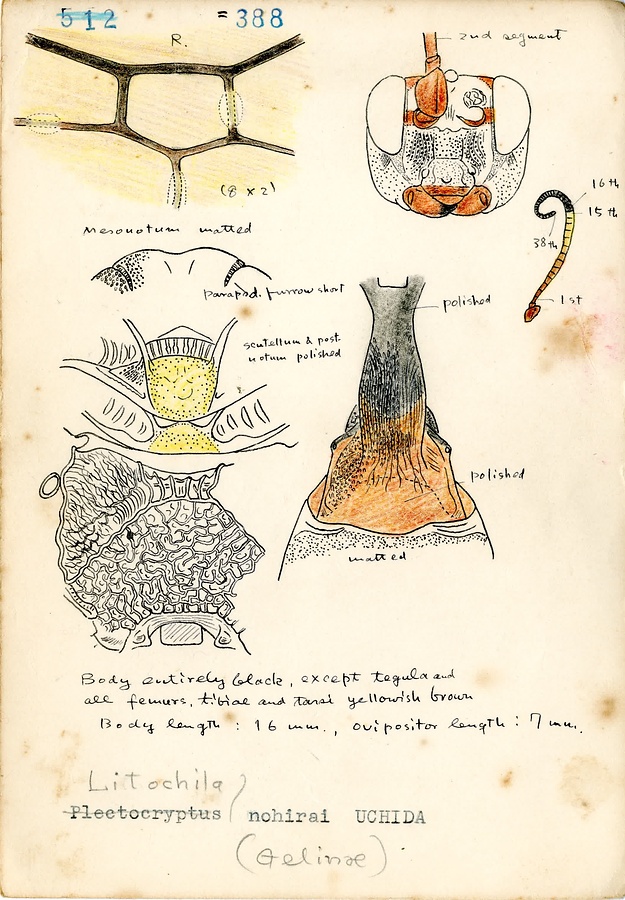 512 = 388
R.
2nd segment
(8 x 2)
16 th
15 th
38 th
1 st
Mesonotum matted
parapsd. furrow short
polished
scutellum & post
notum polished
polished
matted
Body entirely black, except tegula and
all femurs, tibiae and tarsi yellowish brown
Body length : 16 mm., ovipositor length : 7 mm.
Litochila
Plectocryptus nohirai UCHIDA
(Gelinae)